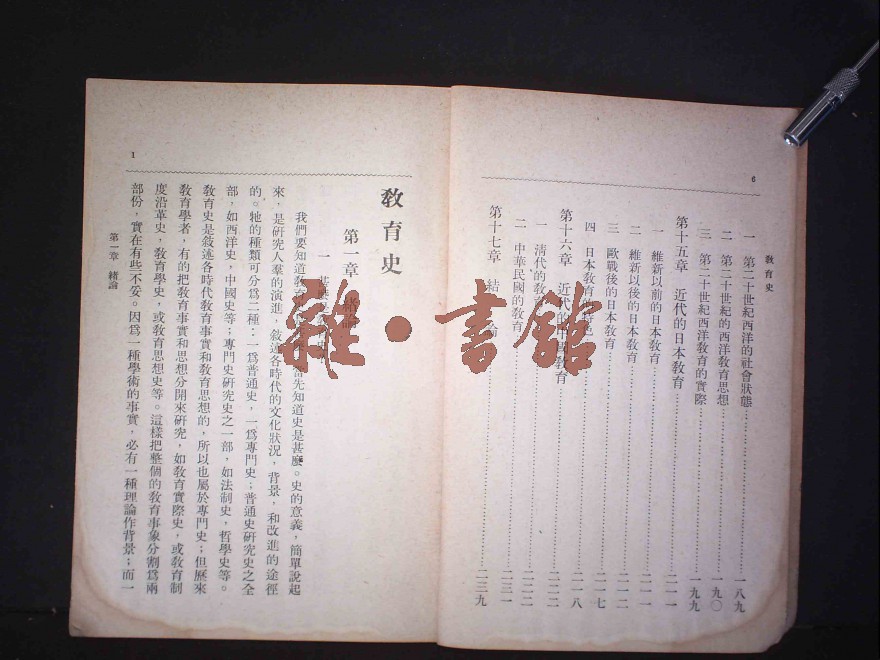 6
教育史
一 第二十世紀西洋的社會狀態 一八九
二 第二十世紀的西洋教育思想 一九〇
三 第二十世紀西洋教育的實際 一九九
第十五章 近代的日本教育 二一一
一 維新以前的日本教育 二一一
二 維新以後的日本教育 二一二
三 歐戰後的日本教育 二一七
四 日本教育 二一八
第十六章 近代的中國教育 二二二
一 清代的教育 二二二
二 中華民國的教育 二三一
第十七章 結論 二三九
1
教育史
第一章 緒論
一
我們要知道教育先知道史是甚麼。史的意義，簡單說起
來，是研究人羣的演進，敍述各時代的文化狀況，背景，和改進的途徑
的。牠的種類可分爲二種：一爲普通史，一爲專門史；普通史研究史之全
部，如西洋史，中國史等；專門史研究史之一部，如法制史，哲學史等。
教育史是敍述各時代教育事實和教育思想的，所以也屬於專門史；但歷來
教育學者，有的把教育事實和思想分開來研究，如教育實際史，或教育制
度沿革史，教育學史，或教育思想史等。這樣把整個的教育事象分割爲兩
部份，實在有些不妥。因爲一種學術的事實，必有一種理論作背景；而一
第一章 緒論
雜・書館